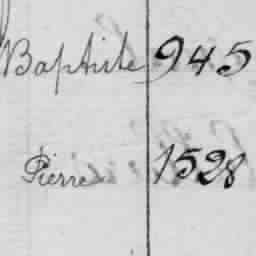 Baptiste 945
Pierre 1528